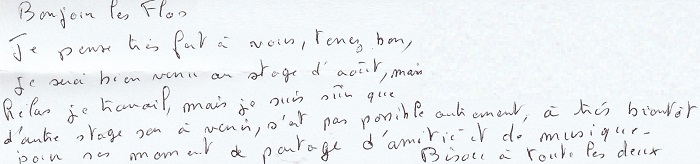 Bonjour les Flos
Je pense très fort à vous, tenez bon,
je serai bien venu au stage d'août, mais
hélas je travail, mais je suis sûr que
d'autre stage son à venir, s'est pas possible autrement, à très bientôt
pour ses moment de partage d'amitié et de musique.
Bisou à tout les deux